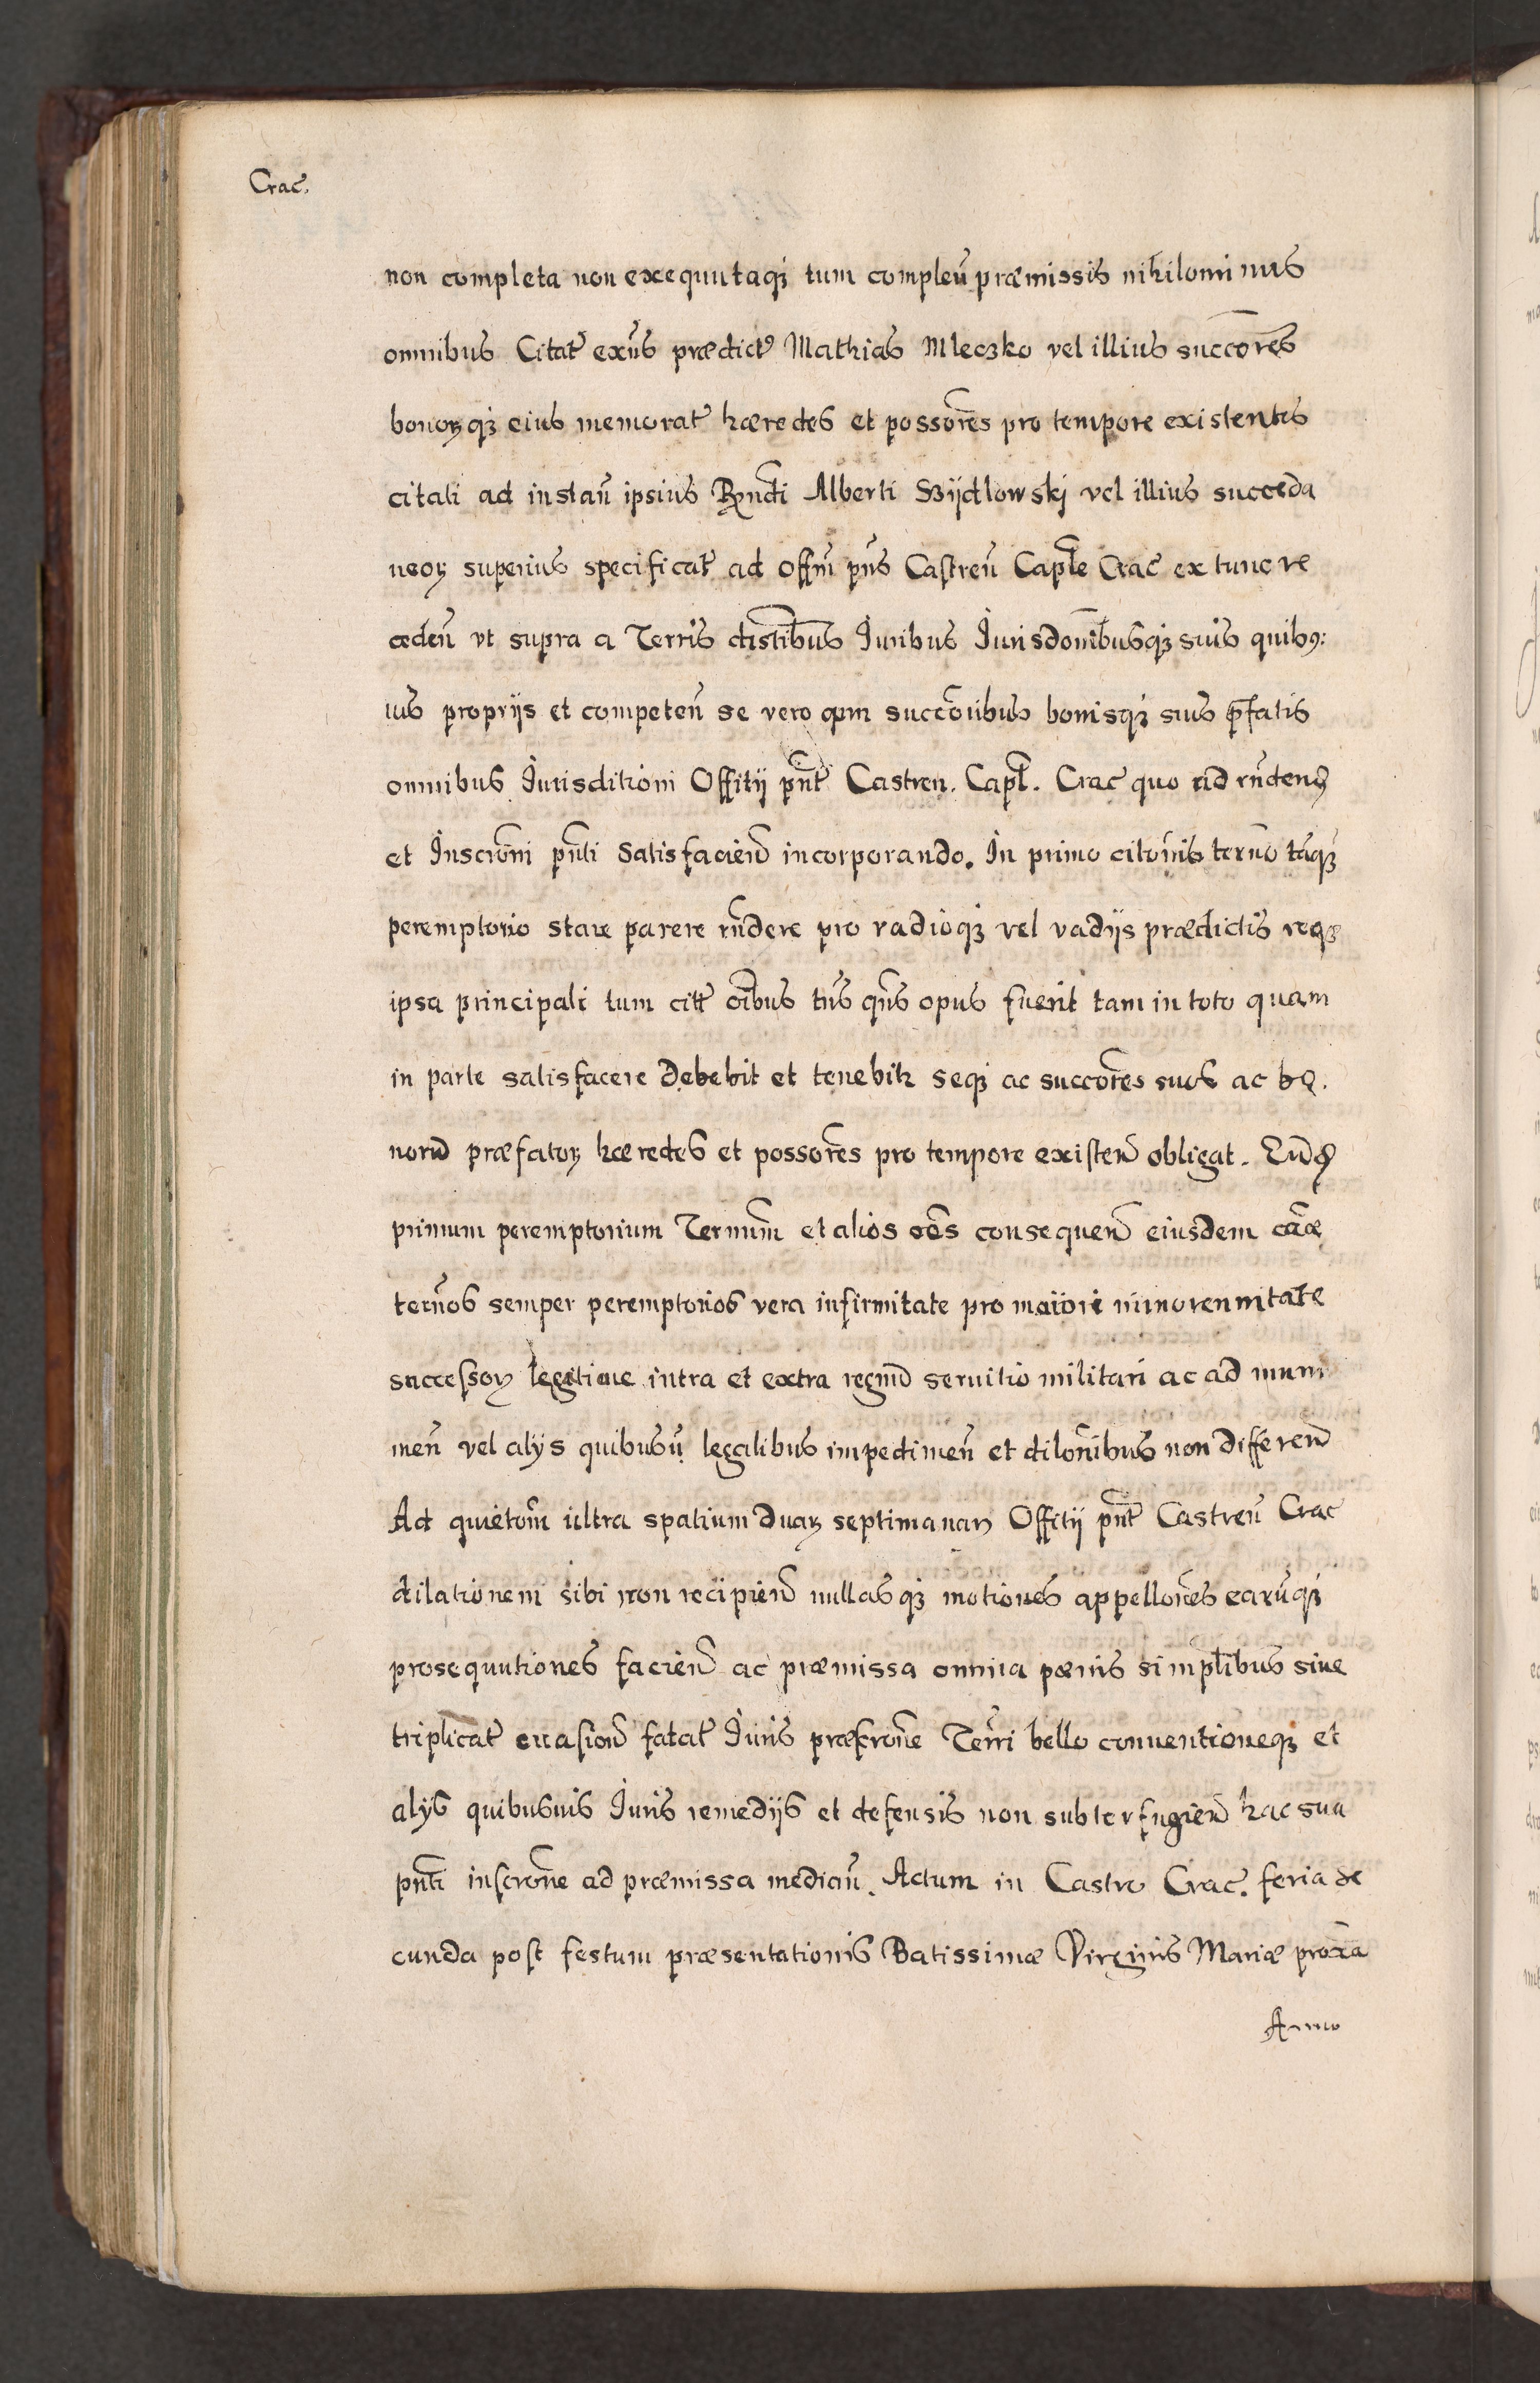 Crac.
non completa non exequutaqꝫ tum compleñ præmissis nihilominus
omnibus Citat̃ exñs prædict̃ Mathias Mleczko vel illius succōres
bonoꝝqꝫ eius memorat̃ hæredes et possōres pro tempore existentes
citati ad instañ ipsius Rṇdi Alberti Szÿdlowskj vel illius succeda
neoꝝ superius specificat̃ ad offm̃ pñs Castreñ Capłe Crac̃ ex tunc re
cedeñ vt supra a Terris distībus Iuribus Iurisdonībusqꝫ suis quibꝯ:
uis proprijs et competeñ se vero cum succōribus bonisqꝫ suis p̄fatis
omnibus Iurisditioni Offitij pñt̃ Castren. Capł. Crac̃ quo ad rñdend̃
et Inscrōni pñti Satisfacieñ incorporando. In primo citōnis termõ tãqꝫ
peremptorio stare parere rñdere pro vadioqꝫ vel vadijs prædictis reqꝫ
ipsa principali tum citt̃ oībus tñs qñs opus fuerit tam in toto quam
in parte satisfacere debebit et tenebitꝛ seqꝫ ac succōres suos ac bo.
norũ præfatoꝝ hæredes et possōres pro tempore existeñ obligat. Eund̃
primum peremptorium Termīm et alios oēs consequeñ eiusdem cāæ
termĩos semper peremptorios vera infirmitate pro maiori minorennitate
successoꝝ legitime intra et extra regnũ seruitio militari ac ad mum
meñ vel alijs quibusũ legalibus impedimeñ et dilōnibus non differeñ
Ad quietōm ultra spatium duaꝝ septimanaꝝ Offitij pñt̃ Castreñ Crac̃
dilationem sibi non recipieñ nullasqꝫ motiones appellōnes earũqꝫ
prosequutiones facieñ ac præmissa omnia pœnis simplībus siue
triplicat̃ euasioñ fatat̃ Iuris præscrōne Terri bello conuentioneqꝫ et
alijs quibusuis Iuris remedijs et defensis non subterfugieñ hac sua
pñti inscrōne ad præmissa mediañ. Actum in Castro Crac̃. feria se
cunda post festum præsentationis Batissimæ Virginis Mariæ proxã
Anno